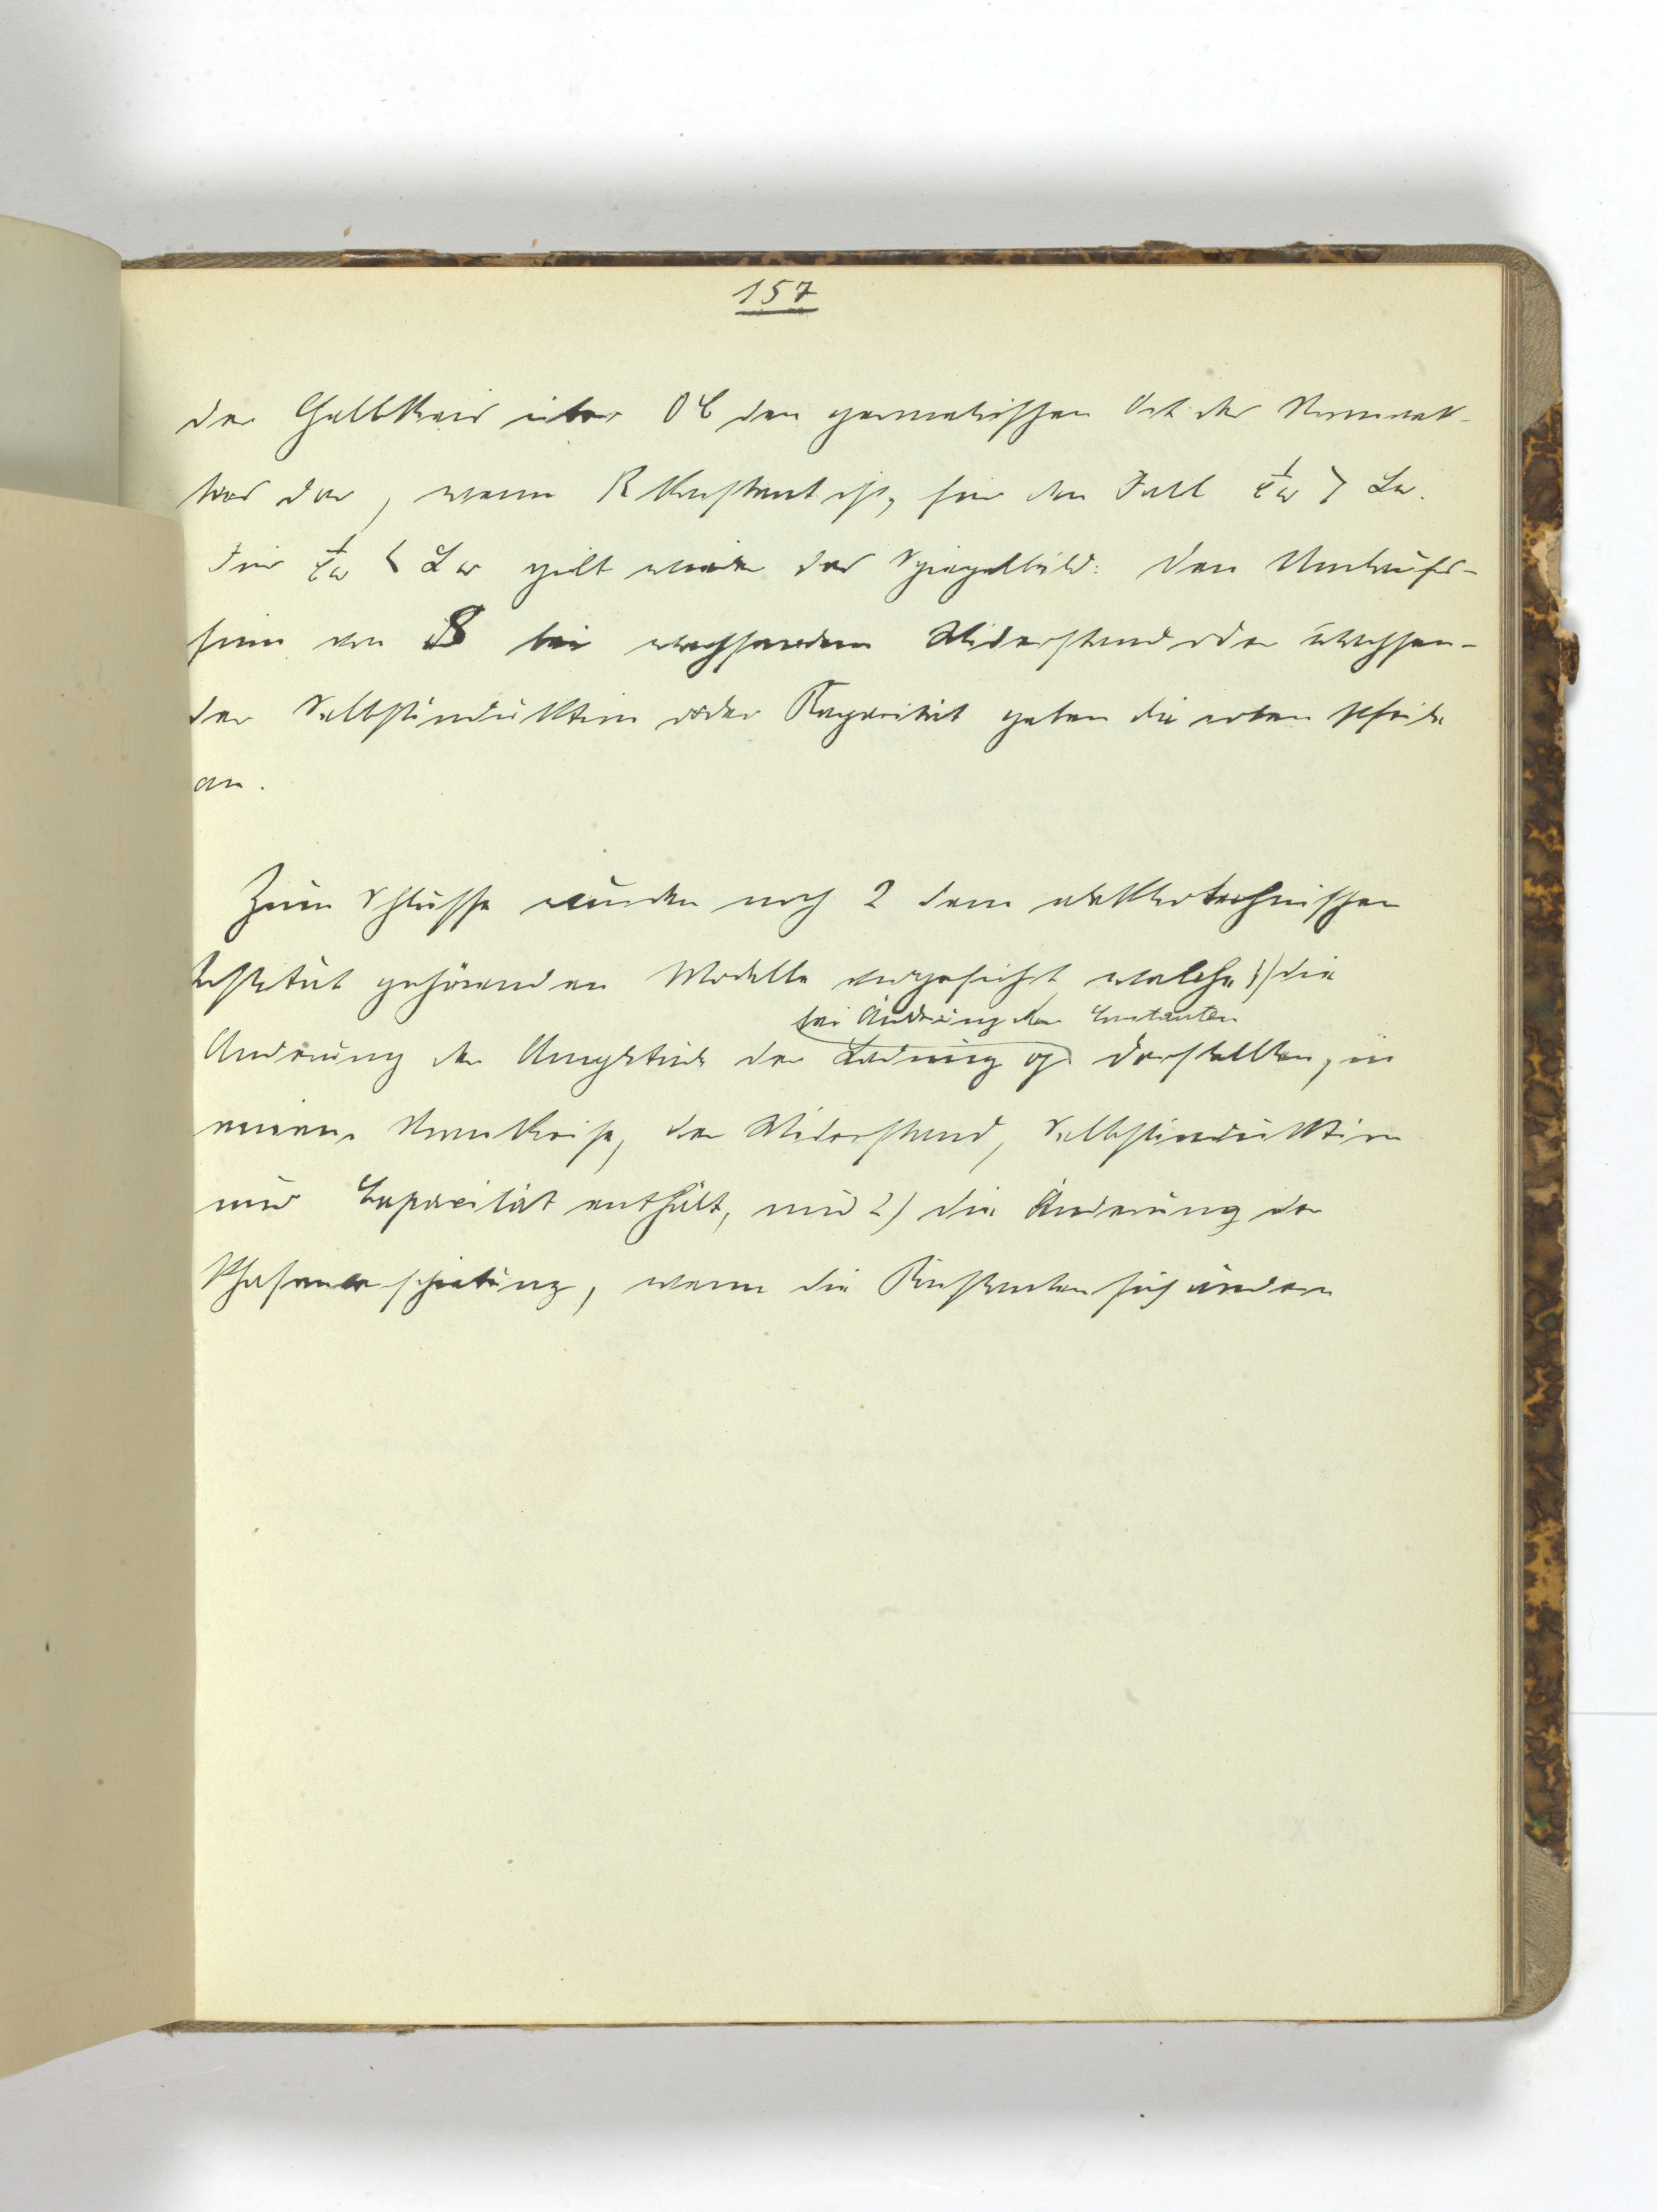 157
der Halbkreis über OC den geometrischen Ort der Stromvek-
tors dar, wenn R Konstant ist, für den Fall 1/Cω > Lω.
Für 1/Cω < Lω gilt wieder das Spiegelbild. Den Umlaufs-
sinn von S bei wachsendem Widerstand oder wachsen-
der Selbstinduktion oder Kapacität geben die roten Pfeile
an.
Zum Schlusse wurden noch 2 dem elektrotechnischen
Institut gehörenden Modelle vorgeführt, welche 1) die
bei Änderung der Constanten
Änderung der Amplitude der Ladung darstellten, in
einem Stromkreise, der Widerstand, Selbstinduktion
und Capacität enthält, und 2) die Änderung der
Phasenverschiebung, wenn die Konstanten sich ändern